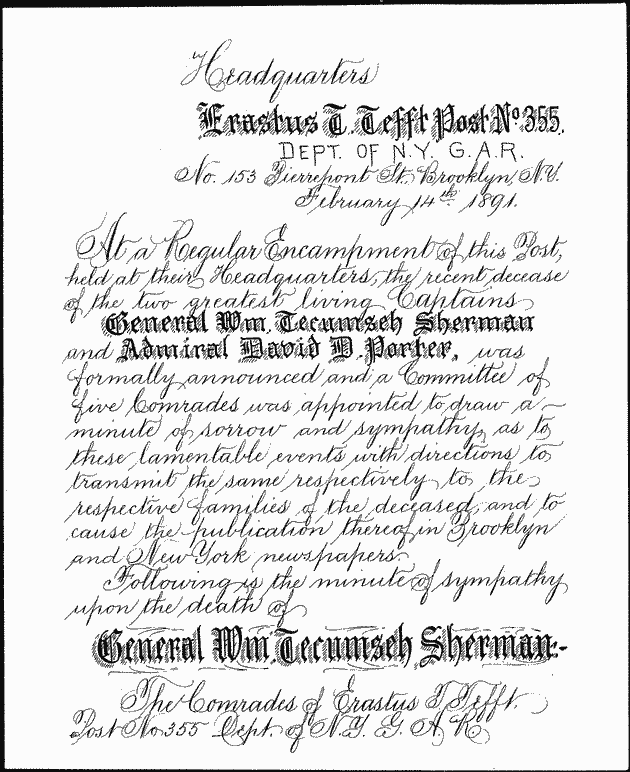 Headquarters
Erastus T. Tefft Post No 355.
DEPT. OF N.Y. G.A.R.
No. 153 Pierrepont St. Brooklyn, N.Y.
February 14th 1891.
At a Regular Encampment of this Post,
held at their Headquarters, the recent decease
of the two greatest living Captains
General Wm. Tecumseh Sherman
and Admiral David D. Porter, was
formally announced and a Committee of
five Comrades was appointed to draw a
minute of sorrow and sympathy, as to
these lamentable events with directions to
transmit the same respectively to the
respective families of the deceased, and to
cause the publication thereof in Brooklyn
and New York newspapers.
Following is the minute of sympathy
upon the death of
General Wm. Tecumseh Sherman:-
The Comrades of Erastus T. Tefft.
Post No. 355 Dept. of N.Y. G. A. R.